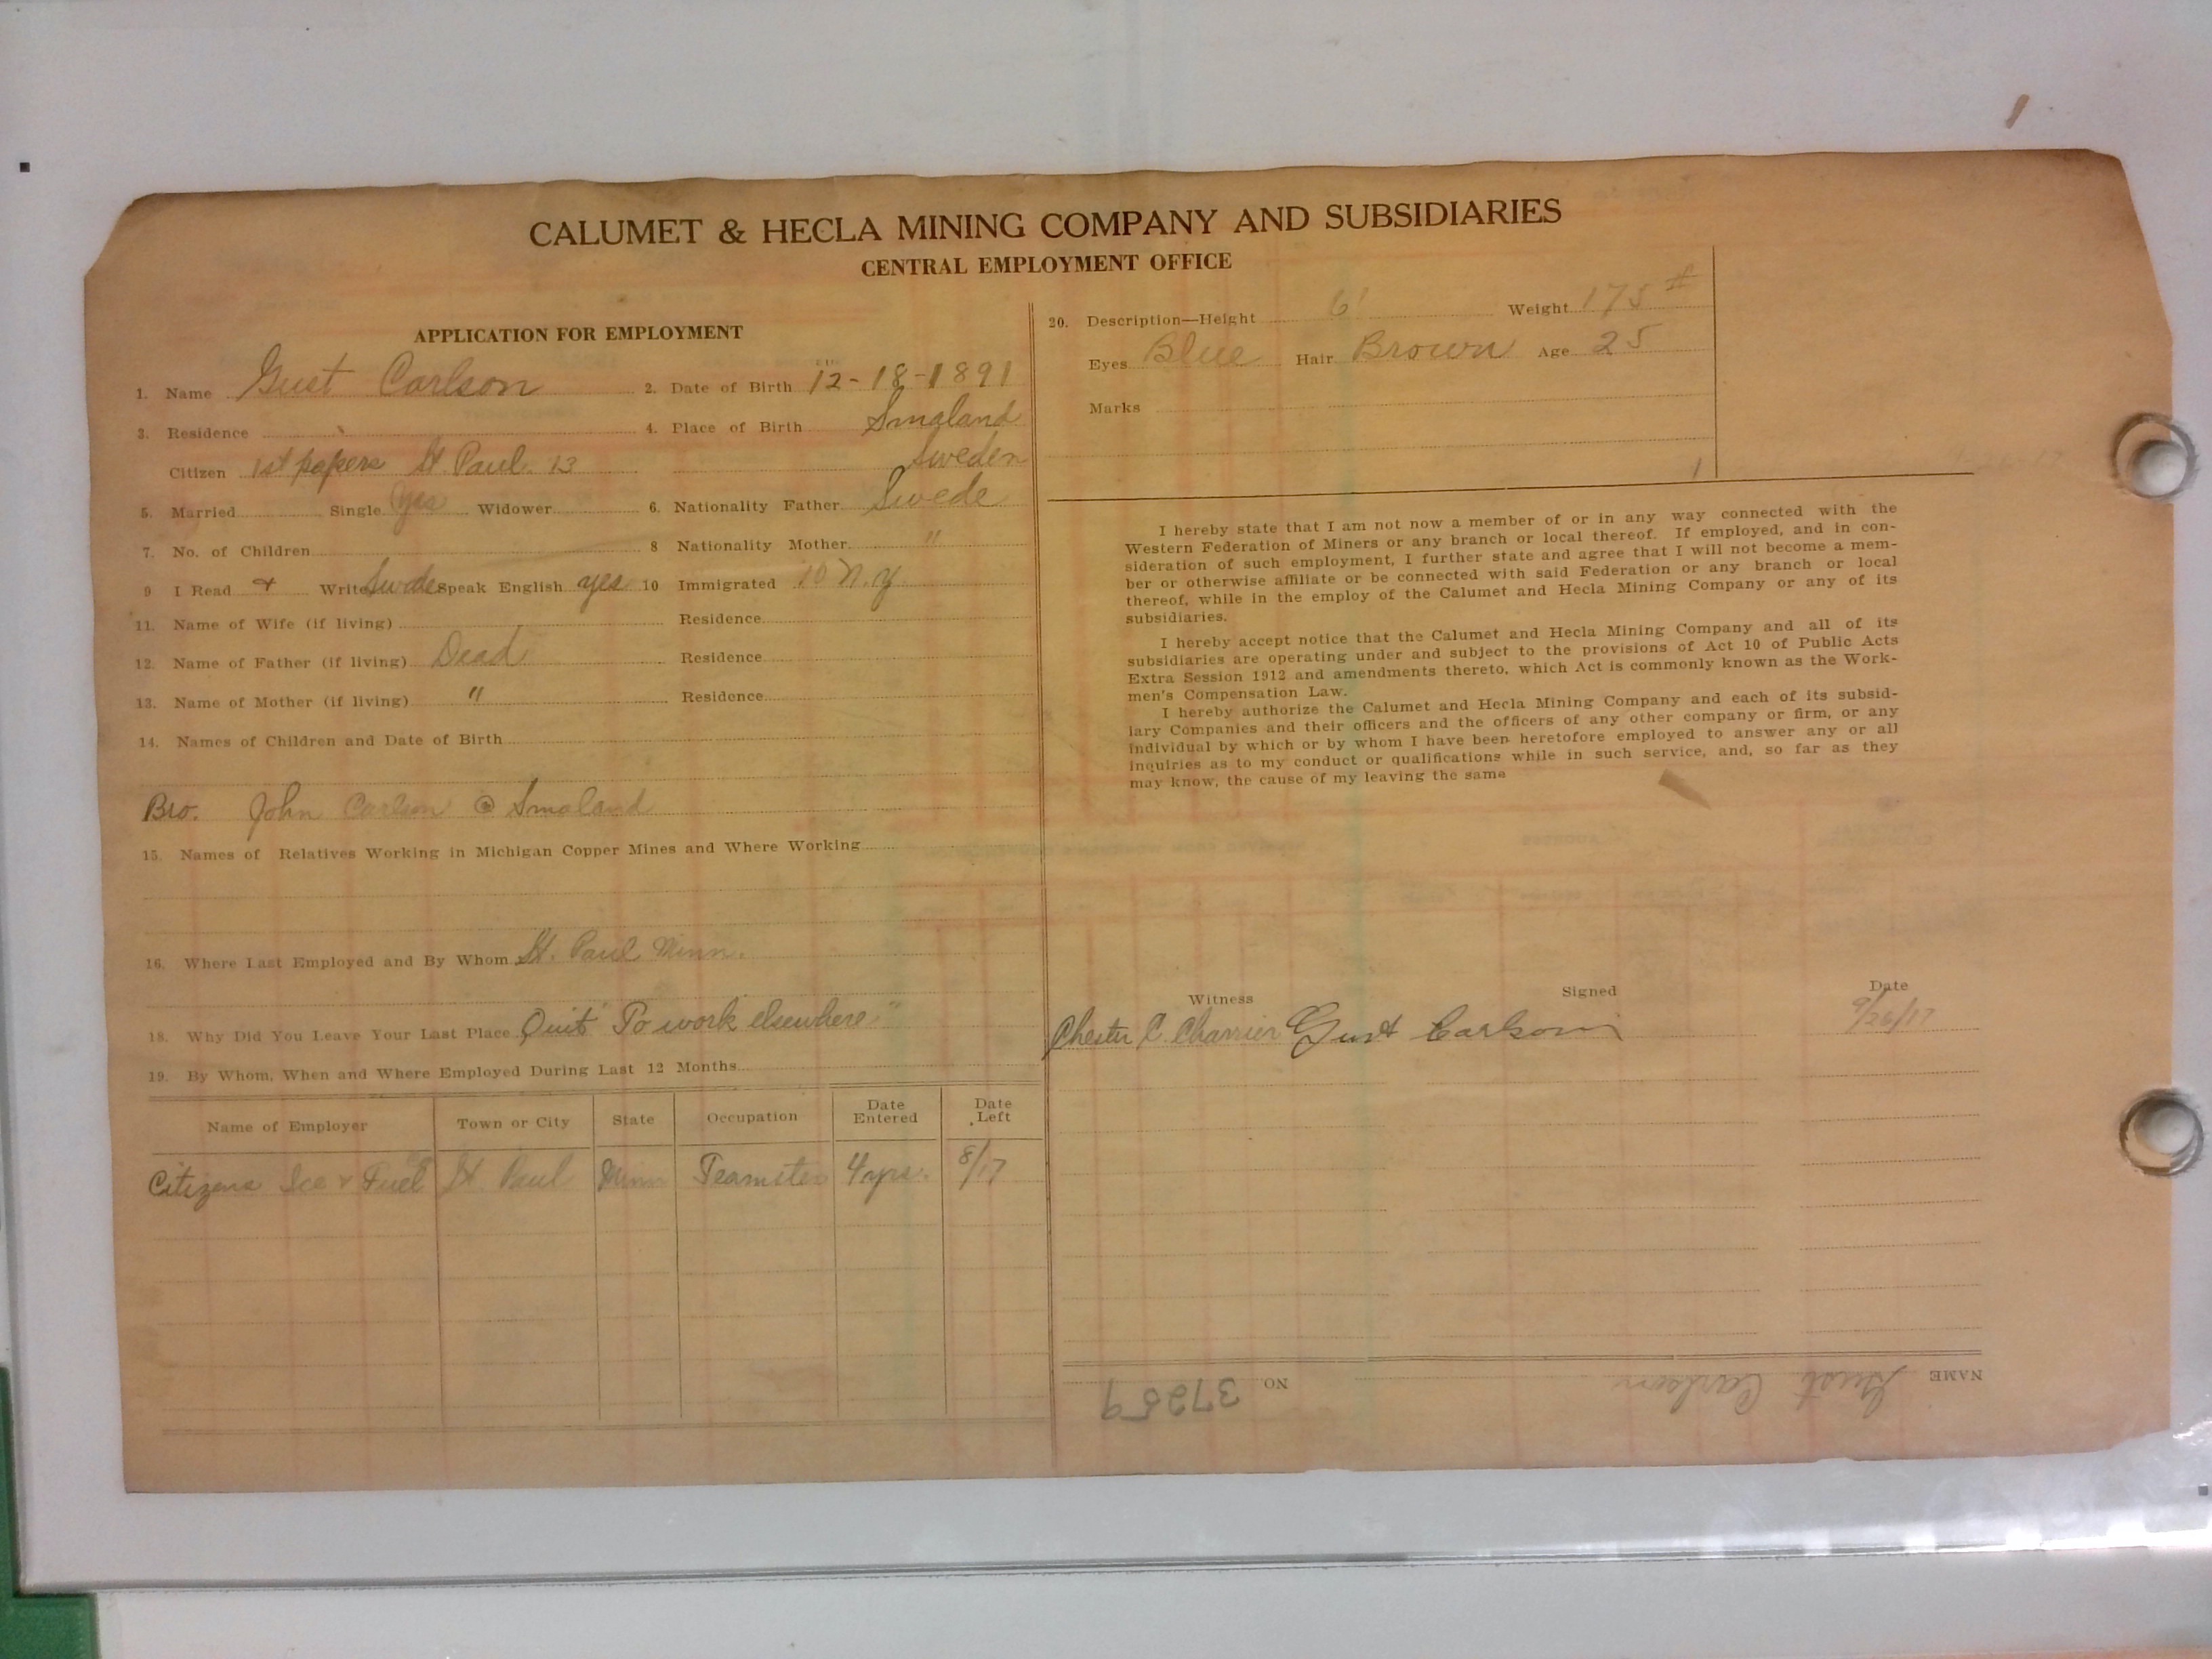 CALUMET & HECLA MINING COMPANY AND SUBSIDIARIES
CENTRAL EMPLOYMENT OFFICE
APPLICATION FOR EMPLOYMENT
1. Name Gust Carlson 2. Date of Birth 12-18-1891
3. Residence 4. Place of Birth Smaland
Citizen 1st papers St. Paul 13 Sweden
5. Married Single yes Widower 6. Nationality Father Swede
7. No. of Children 8 Nationality Mother "
9 I Read + Write Swede Speak English yes 10 Immigrated 10 N.Y
11. Name of Wife (if living) Residence
12. Name of Father (if living) Dead Residence
13. Name of Mother (if living) " Residence
14. Names of Children and Date of Birth
Bro. John Carlson @ Smaland
15. Names of Relatives Working in Michigan Copper Mines and Where Working
16. Where Last Employed and By Whom St. Paul Minn.
18. Why Did You Leave Your Last Place Quit "To work elsewhere"
19. By Whom, When and Where Employed During Last 12 Months
Name of Employer Town or City State Occupation Date Entered Date Left
Citizens Ice & Fuel St. Paul Minn Teamster 4 yrs. 8/17
20. Description—Height 6' Weight 175 #
Eyes Blue Hair Brown Age 25
Marks
1
I hereby state that I am not now a member of or in any way connected with the
Western Federation of Miners or any branch or local thereof. If employed, and in con-
sideration of such employment, I further state and agree that I will not become a mem-
ber or otherwise affiliate or be connected with said Federation or any branch or local
thereof, while in the employ of the Calumet and Hecla Mining Company or any of its
subsidiaries.
I hereby accept notice that the Calumet and Hecla Mining Company and all of its
subsidiaries are operating under and subject to the provisions of Act 10 of Public Acts
Extra Session 1912 and amendments thereto, which Act is commonly known as the Work-
men's Compensation Law.
I hereby authorize the Calumet and Hecla Mining Company and each of its subsid-
iary Companies and their officers and the officers of any other company or firm, or any
individual by which or by whom I have been heretofore employed to answer any or all
inquiries as to my conduct or qualifications while in such service, and, so far as they
may know, the cause of my leaving the same
Witness Signed Date
Chester C. Charrier Gust Carlson 9/26/17
NAME Gust Carlson NO. 37259